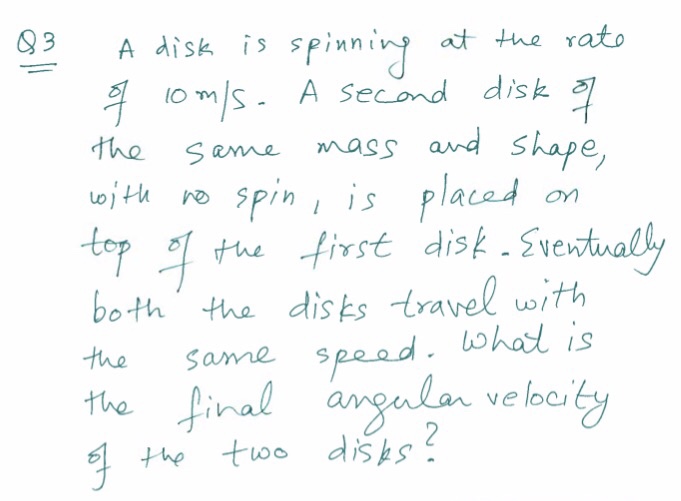 Q3 A disk is spinning at the rate
of 10 m/s. A second disk of
the same mass and shape,
with no spin, is placed on
top of the first disk. Eventually
both the disks travel with
the same speed. What is
the final angular velocity
of the two disks?